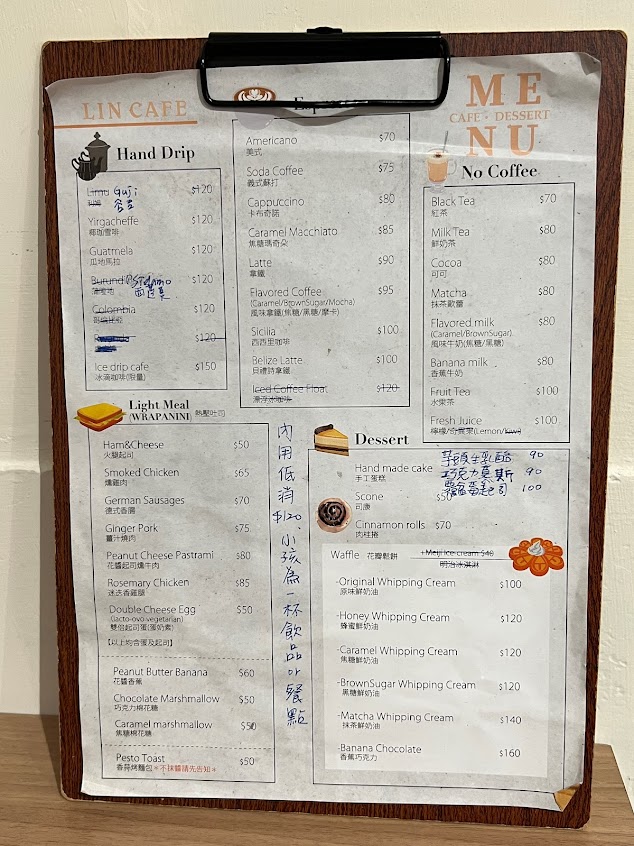 LIN CAFE
ME
CAFE · DESSERT
NU
Hand Drip
Limu Guji $120
谷吉
Yirgacheffe $120
耶珈雪啡
Guatmela $120
瓜地馬拉
Burundi Sidamo $120
西達莫
Colombia $120
哥倫比亞
$120
Ice drip cafe $150
冰滴咖啡(限量)
Americano $70
美式
Soda Coffee $75
義式蘇打
Cappuccino $80
卡布奇諾
Caramel Macchiato $85
焦糖瑪奇朵
Latte $90
拿鐵
Flavored Coffee $95
(Caramel/BrownSugar/Mocha)
風味拿鐵(焦糖/黑糖/摩卡)
Sicilia $100
西西里咖啡
Belize Latte $100
貝禮詩拿鐵
Iced Coffee Float $120
漂浮冰咖啡
No Coffee
Black Tea $70
紅茶
Milk Tea $80
鮮奶茶
Cocoa $80
可可
Matcha $80
抹茶歐蕾
Flavored milk $80
(Caramel/BrownSugar)
風味牛奶(焦糖/黑糖)
Banana milk $80
香蕉牛奶
Fruit Tea $100
水果茶
Fresh Juice $100
檸檬/奇異果(Lemon/Kiwi)
Light Meal
(WRAPANINI) 熱壓吐司
Ham&Cheese $50
火腿起司
Smoked Chicken $65
燻雞肉
German Sausages $70
德式香腸
Ginger Pork $75
薑汁燒肉
Peanut Cheese Pastrami $80
花醬起司燻牛肉
Rosemary Chicken $85
迷迭香雞腿
Double Cheese Egg $50
(lacto-ovo vegetarian)
雙倍起司蛋(蛋奶素)
【以上均含蛋及起司】
Peanut Butter Banana $60
花醬香蕉
Chocolate Marshmallow $50
巧克力棉花糖
Caramel marshmallow $50
焦糖棉花糖
Pesto Toast $50
香蒜烤麵包*不抹醬請先告知*
內用低消$120,小孩為一杯飲品or餐點
Dessert
芋頭生乳酪 90
Hand made cake 巧克力慕斯 90
手工蛋糕
100
Scone $50
司康
Cinnamon rolls $70
肉桂捲
Waffle 花瓣鬆餅 +Meiji ice cream $40
明治冰淇淋
-Original Whipping Cream $100
原味鮮奶油
-Honey Whipping Cream $120
蜂蜜鮮奶油
-Caramel Whipping Cream $120
焦糖鮮奶油
-BrownSugar Whipping Cream $120
黑糖鮮奶油
-Matcha Whipping Cream $140
抹茶鮮奶油
-Banana Chocolate $160
香蕉巧克力